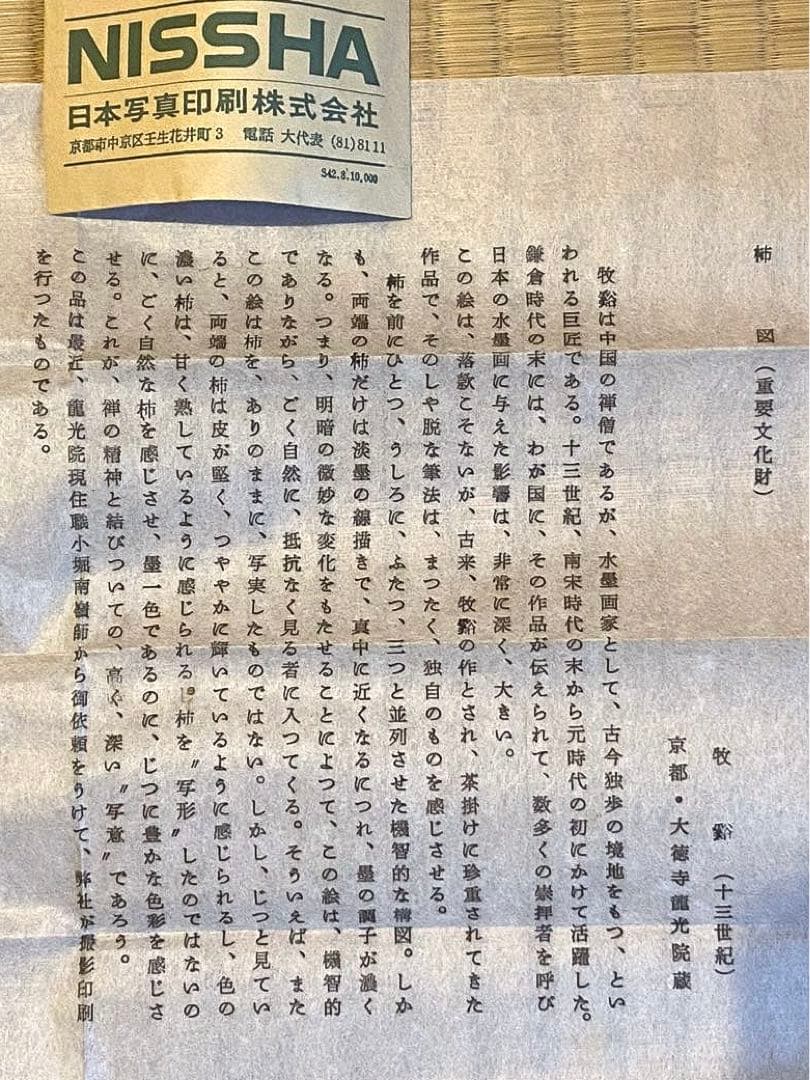 NISSHA
日本写真印刷株式会社
京都市中京区壬生花井町3 電話 大代表 (81)8111
S42.8.10,000
柿 図(重要文化財)
牧 谿(十三世紀)
京都・大徳寺龍光院蔵
牧谿は中国の禅僧であるが、水墨画家として、古今独歩の境地をもつ、とい
われる巨匠である。十三世紀、南宋時代の末から元時代の初にかけて活躍した。
鎌倉時代の末には、わが国に、その作品が伝えられて、数多くの崇拝者を呼び
日本の水墨画に与えた影響は、非常に深く、大きい。
この絵は、落款こそないが、古来、牧谿の作とされ、茶掛けに珍重されてきた
作品で、そのしや脱な筆法は、まつたく、独自のものを感じさせる。
柿を前にひとつ、うしろに、ふたつ、三つと並列させた機智的な構図。しか
も、両端の柿だけは淡墨の線描きで、真中に近くなるにつれ、墨の調子が濃く
なる。つまり、明暗の微妙な変化をもたせることによつて、この絵は、機智的
でありながら、ごく自然に、抵抗なく見る者に入つてくる。そういえば、また
この絵は柿を、ありのままに、写実したものではない。しかし、じつと見てい
ると、両端の柿は皮が堅く、つややかに輝いているように感じられるし、色の
濃い柿は、甘く熟しているように感じられる。柿を〝写形〟したのではないの
に、ごく自然な柿を感じさせ、墨一色であるのに、じつに豊かな色彩を感じさ
せる。これが、禅の精神と結びついての、高く、深い〝写意〟であろう。
この品は最近、龍光院現住職小堀南嶺師から御依頼をうけて、弊社が撮影印刷
を行つたものである。